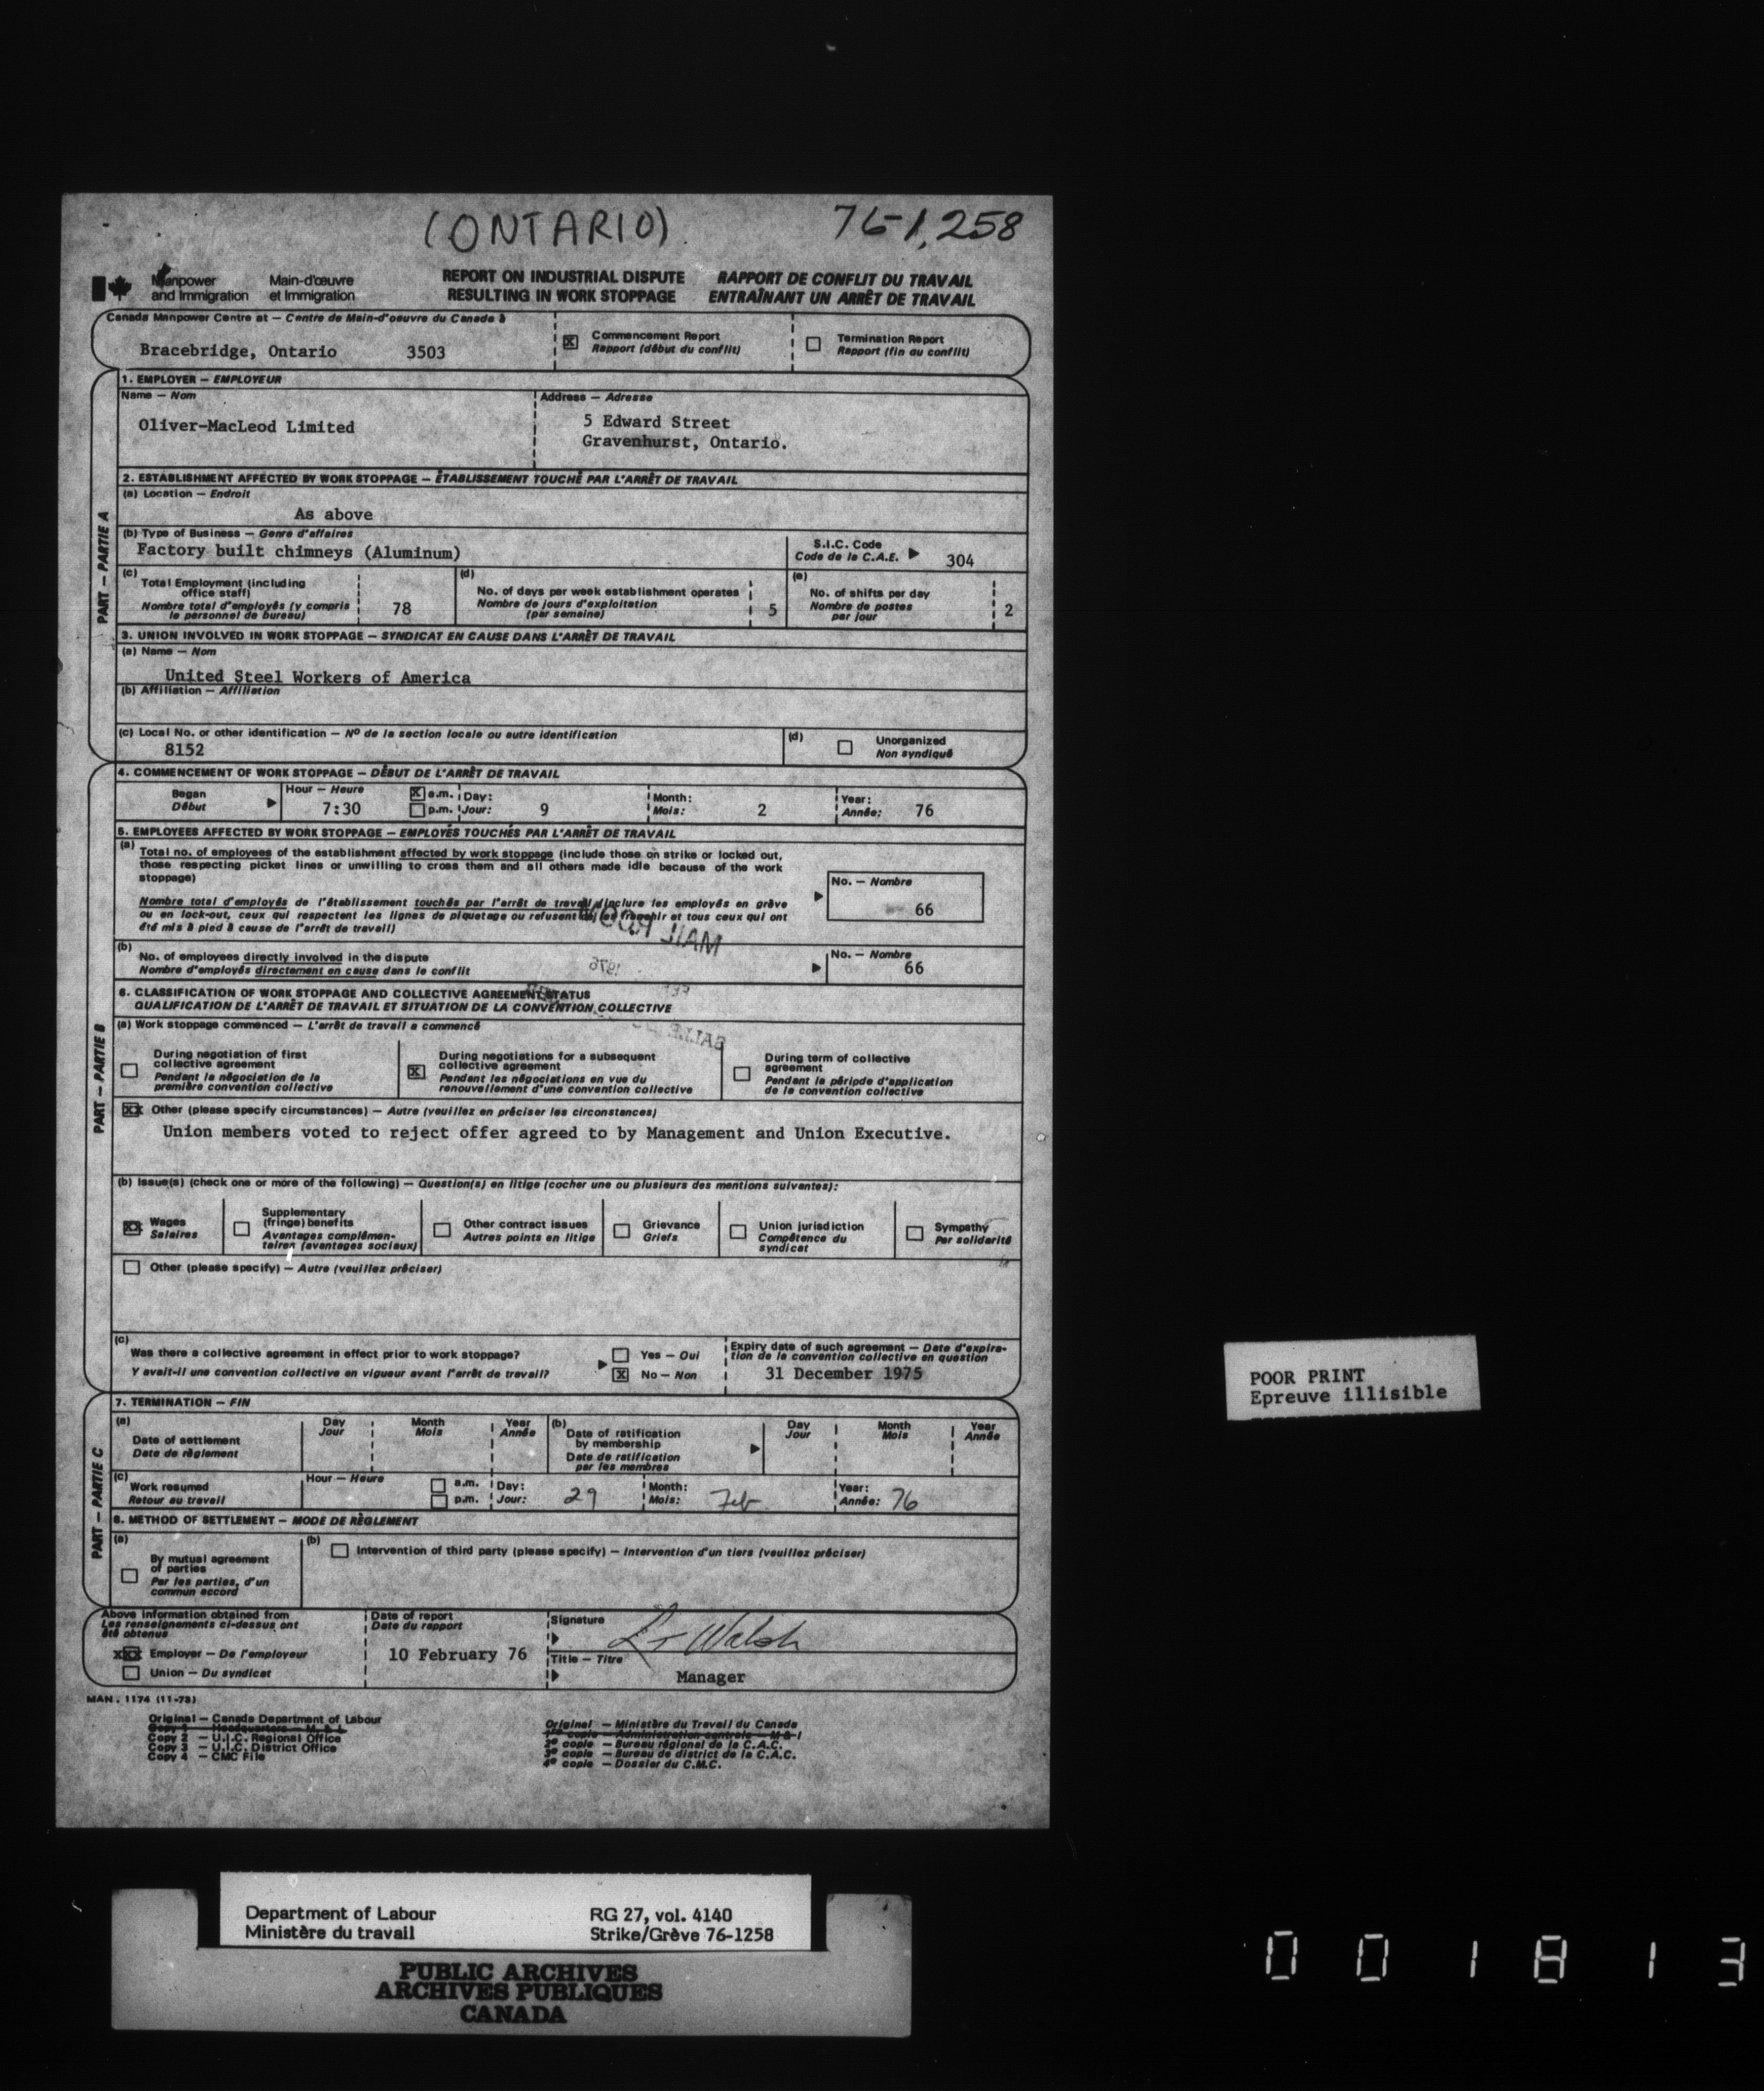 (ONTARIO)
76-1,258
Manpower and Immigration
Main-d'œuvre et Immigration
REPORT ON INDUSTRIAL DISPUTE
RESULTING IN WORK STOPPAGE
RAPPORT DE CONFLIT DU TRAVAIL
ENTRAÎNANT UN ARRÊT DE TRAVAIL
Canada Manpower Centre at — Centre de Main-d'oeuvre du Canada à
Bracebridge, Ontario 3503
X Commencement Report
Rapport (début du conflit)
Termination Report
Rapport (fin du conflit)
PART — PARTIE A
1. EMPLOYER — EMPLOYEUR
Name — Nom
Oliver-MacLeod Limited
Address — Adresse
5 Edward Street
Gravenhurst, Ontario.
2. ESTABLISHMENT AFFECTED BY WORK STOPPAGE — ÉTABLISSEMENT TOUCHÉ PAR L'ARRÊT DE TRAVAIL
(a) Location — Endroit
As above
(b) Type of Business — Genre d'affaires
Factory built chimneys (Aluminum)
S.I.C. Code
Code de la C.A.E. 304
(c) Total Employment (including
office staff)
Nombre total d'employés (y compris
le personnel de bureau)
78
(d) No. of days per week establishment operates
Nombre de jours d'exploitation
(par semaine)
5
(e) No. of shifts per day
Nombre de postes
par jour
2
3. UNION INVOLVED IN WORK STOPPAGE — SYNDICAT EN CAUSE DANS L'ARRÊT DE TRAVAIL
(a) Name — Nom
United Steel Workers of America
(b) Affiliation — Affiliation
(c) Local No. or other identification — Nº de la section locale ou autre identification
8152
(d) Unorganized
Non syndiqué
PART — PARTIE B
4. COMMENCEMENT OF WORK STOPPAGE — DÉBUT DE L'ARRÊT DE TRAVAIL
Began
Début
Hour — Heure
7:30
X a.m.
p.m.
Day:
Jour: 9
Month:
Mois: 2
Year:
Année: 76
5. EMPLOYEES AFFECTED BY WORK STOPPAGE — EMPLOYÉS TOUCHÉS PAR L'ARRÊT DE TRAVAIL
(a) Total no. of employees of the establishment affected by work stoppage (include those on strike or locked out,
those respecting picket lines or unwilling to cross them and all others made idle because of the work
stoppage)
Nombre total d'employés de l'établissement touchés par l'arrêt de travail (inclure les employés en grève
ou en lock-out, ceux qui respectent les lignes de piquetage ou refusent de les franchir et tous ceux qui ont
été mis à pied à cause de l'arrêt de travail)
No. — Nombre
66
MAIL ROOM
1976
(b) No. of employees directly involved in the dispute
Nombre d'employés directement en cause dans le conflit
No. — Nombre
66
6. CLASSIFICATION OF WORK STOPPAGE AND COLLECTIVE AGREEMENT STATUS
QUALIFICATION DE L'ARRÊT DE TRAVAIL ET SITUATION DE LA CONVENTION COLLECTIVE
SALLE
(a) Work stoppage commenced — L'arrêt de travail a commencé
During negotiation of first
collective agreement
Pendant la négociation de la
première convention collective
X During negotiations for a subsequent
collective agreement
Pendant les négociations en vue du
renouvellement d'une convention collective
During term of collective
agreement
Pendant la période d'application
de la convention collective
XX Other (please specify circumstances) — Autre (veuillez en préciser les circonstances)
Union members voted to reject offer agreed to by Management and Union Executive.
(b) Issue(s) (check one or more of the following) — Question(s) en litige (cocher une ou plusieurs des mentions suivantes):
XX Wages
Salaires
Supplementary
(fringe) benefits
Avantages complémen-
taires (avantages sociaux)
Other contract issues
Autres points en litige
Grievance
Griefs
Union jurisdiction
Compétence du
syndicat
Sympathy
Par solidarité
Other (please specify) — Autre (veuillez préciser)
(c) Was there a collective agreement in effect prior to work stoppage?
Y avait-il une convention collective en vigueur avant l'arrêt de travail?
Yes — Oui
X No — Non
Expiry date of such agreement — Date d'expira-
tion de la convention collective en question
31 December 1975
PART — PARTIE C
7. TERMINATION — FIN
(a) Date of settlement
Date de règlement
Day
Jour
Month
Mois
Year
Année
(b) Date of ratification
by membership
Date de ratification
par les membres
Day
Jour
Month
Mois
Year
Année
(c) Work resumed
Retour au travail
Hour — Heure
a.m.
p.m.
Day:
Jour: 29
Month:
Mois: Feb
Year:
Année: 76
8. METHOD OF SETTLEMENT — MODE DE RÈGLEMENT
(a) By mutual agreement
of parties
Par les parties, d'un
commun accord
(b) Intervention of third party (please specify) — Intervention d'un tiers (veuillez préciser)
Above information obtained from
Les renseignements ci-dessus ont
été obtenus
XXX Employer — De l'employeur
Union — Du syndicat
Date of report
Date du rapport
10 February 76
Signature
Walsh
Title — Titre
Manager
MAN. 1174 (11-73)
Original — Canada Department of Labour
Copy 1 — Headquarters — M & I
Copy 2 — U.I.C. Regional Office
Copy 3 — U.I.C. District Office
Copy 4 — CMC File
Original — Ministère du Travail du Canada
1re copie — Administration centrale — M & I
2e copie — Bureau régional de la C.A.C.
3e copie — Bureau de district de la C.A.C.
4e copie — Dossier du C.M.C.
POOR PRINT
Epreuve illisible
Department of Labour
Ministère du travail
RG 27, vol. 4140
Strike/Grève 76-1258
PUBLIC ARCHIVES
ARCHIVES PUBLIQUES
CANADA
0 0 1 8 1 3